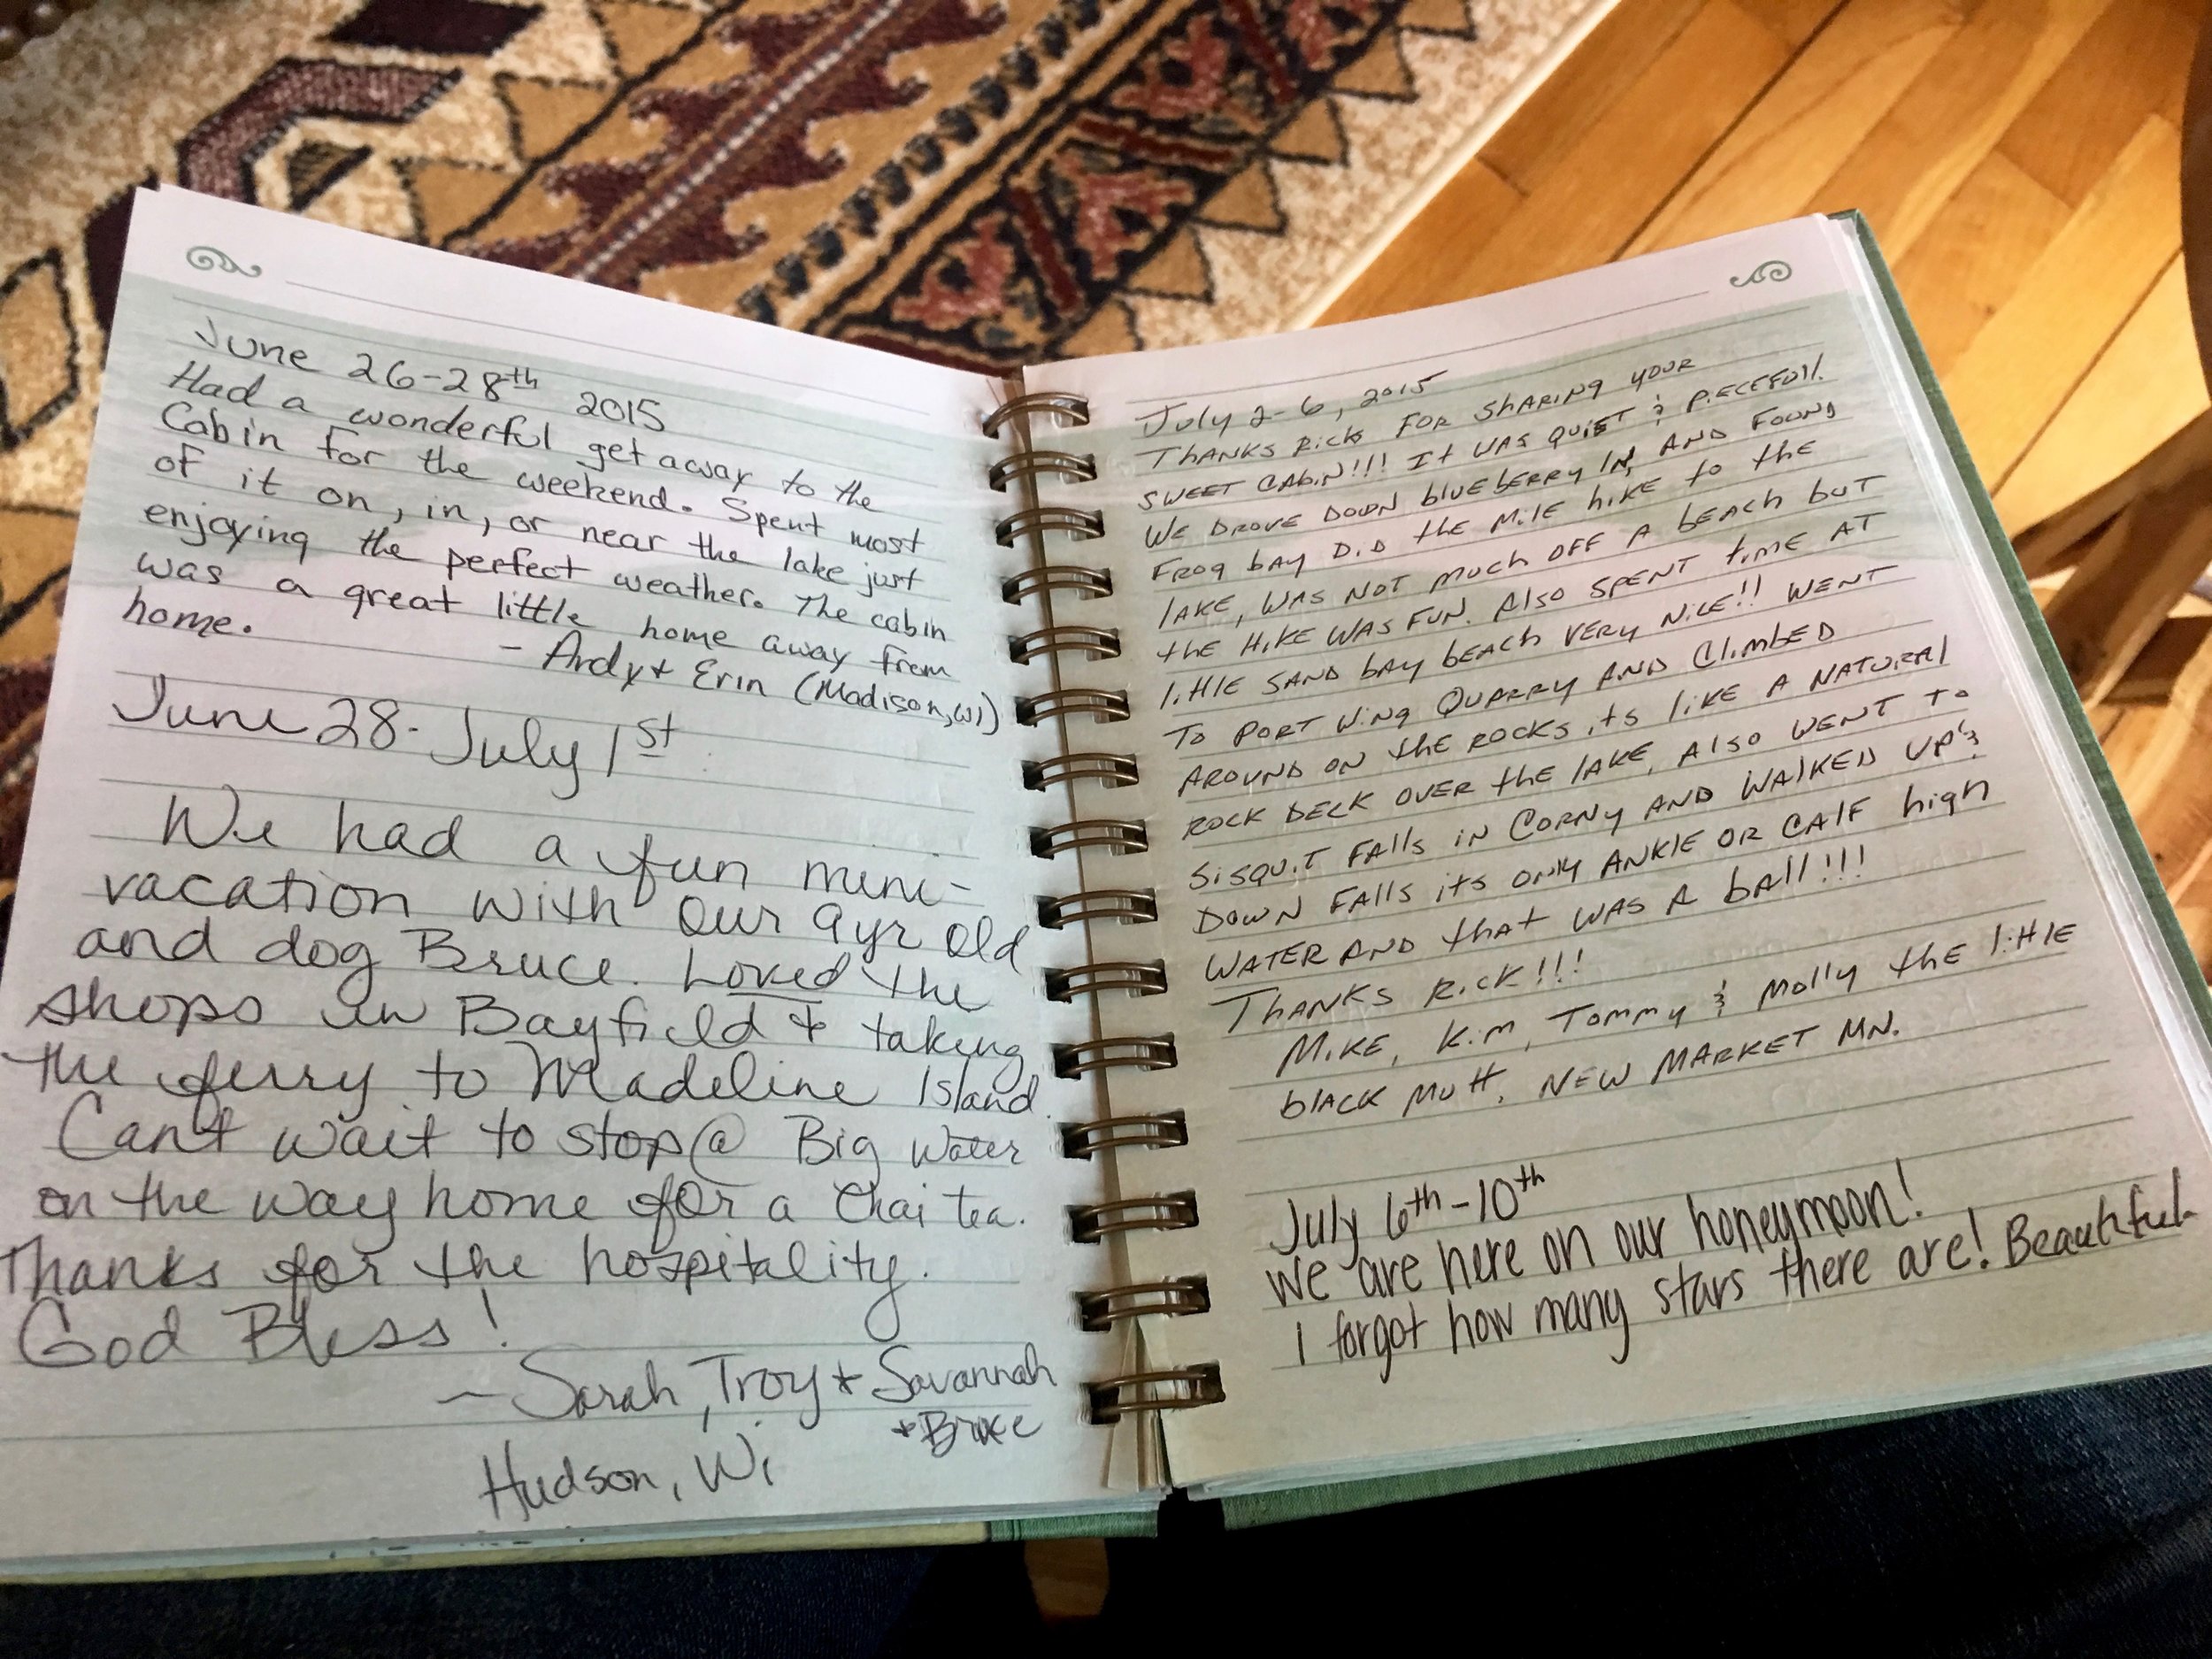 June 26-28th 2015
Had a wonderful get away to the
Cabin for the weekend. Spent most
of it on, in, or near the lake just
enjoying the perfect weather. The cabin
was a great little home away from
home.
- Andy + Erin (Madison, WI)
June 28- July 1st
We had a fun mini-
vacation with our 9yr old
and dog Bruce. Loved the
shops in Bayfield + taking
the ferry to Madeline Island.
Can't wait to stop @ Big Water
on the way home for a Chai tea.
Thanks for the hospitality.
God Bless!
~ Sarah, Troy + Savannah
+ Bruce
Hudson, Wi
July 2-6, 2015
THANKS RICK FOR SHARING YOUR
SWEET CABIN!!! IT WAS QUIET & PIECEFUll.
WE DROVE DOWN blUEBERRY lN, AND FOUND
FROG bAY DID the MilE hiKE to the
lAKE, WAS NOT MUCH OFF A bEACH buT
the HIKE WAS FUN. AlSO SPENT timE AT
littlE SAND bAY bEACH VERY NiCE!! WENT
TO PORT WiNg QUARRY AND ClimbED
AROUND ON the ROCKS its liKE A NATURAl
ROCK DECK OVER the lAKE, AlSO WENT TO
SiSQUiT FAlls iN CORNY AND WAlKED UP &
DOWN FAlls its ONlY ANKlE OR CAlF high
WATER AND that WAS A bAll!!!
THANKS RiCK!!!
MiKE, KiM, Tommy & Molly the littlE
blACK MUtt, NEW MARKET MN.
July 6th-10th
We are here on our honeymoon!
I forgot how many stars there are! Beautiful